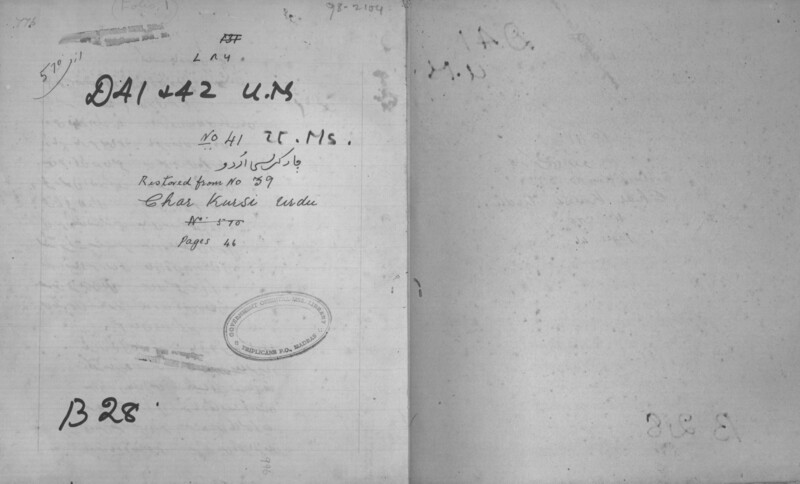 98-2104
L N 4.
D41 & 42 U.M
No 41 ZT. Ms.
چار کرسی اُردو
Restored from No 39
Char Kursi Urdu
No. 570
Pages 46
GOVERNMENT ORIENTAL MSS. LIBRARY
TRIPLICANE P.O., MADRAS
B 28